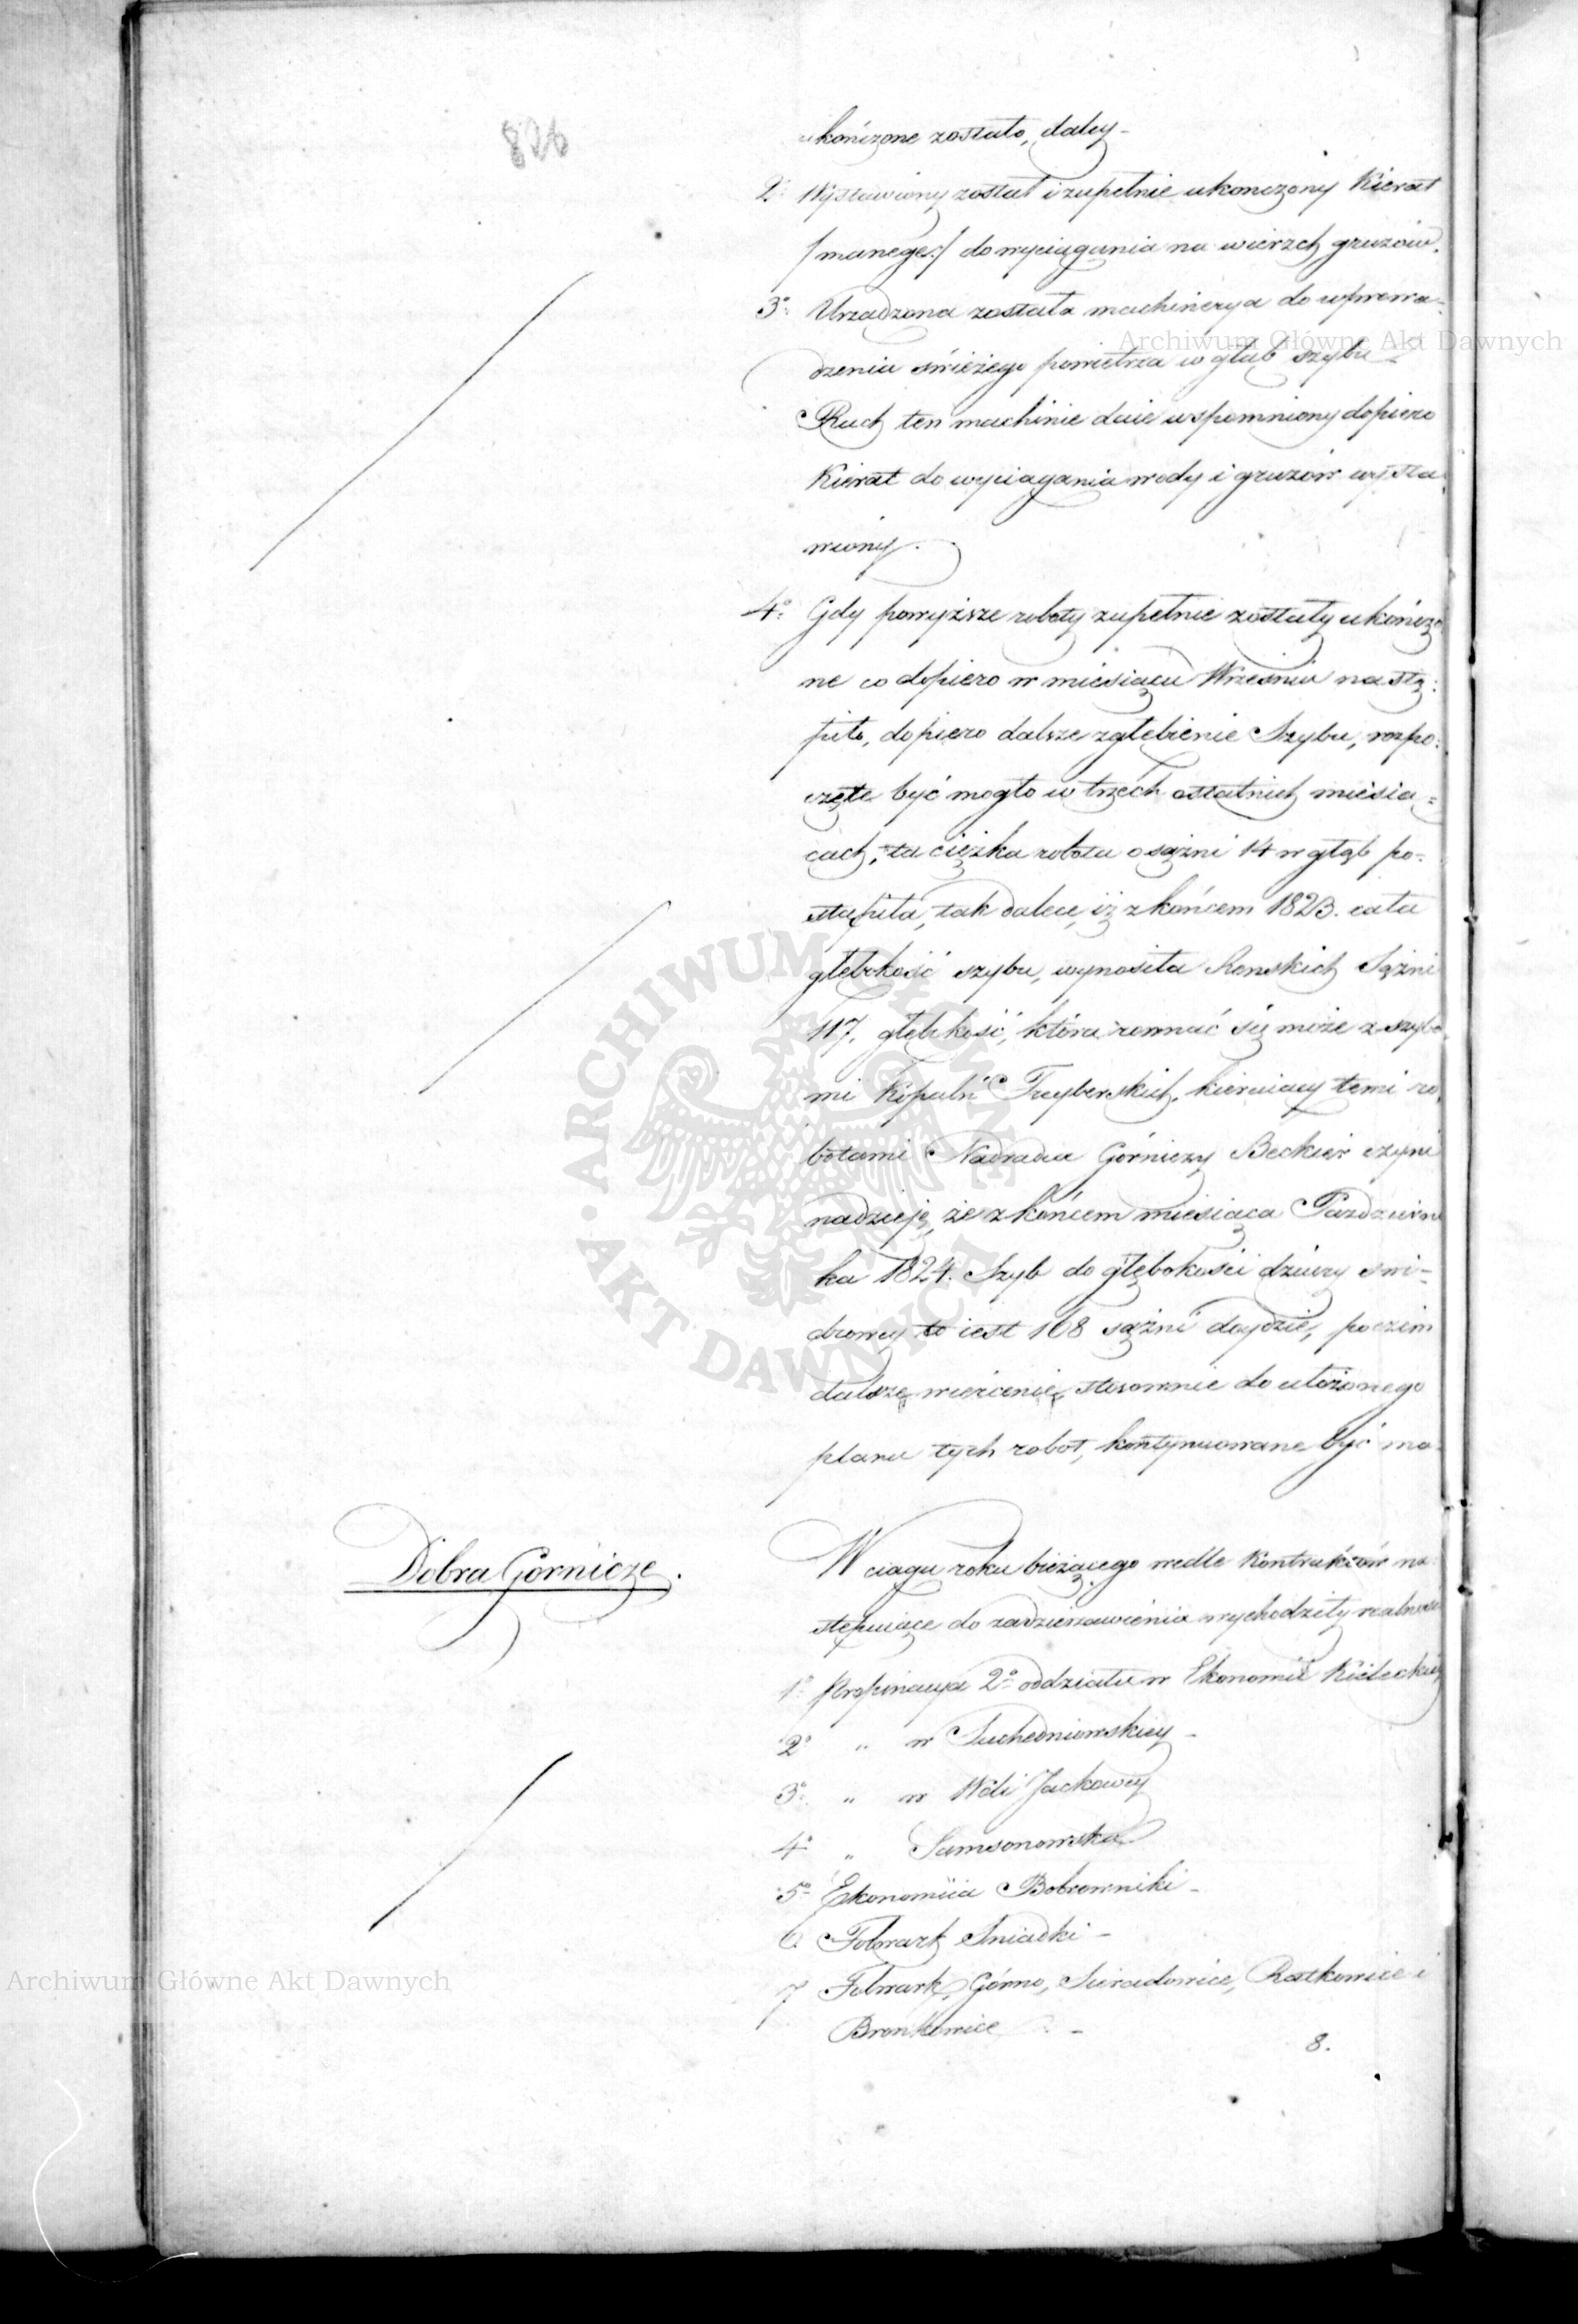 826
ukończone zostało, daley -
2° Wystawiony został i zupełnie ukonczony Kierat
/manege:/ do wyciągania na wierzch gruzów.
3° Urządzona została machinerya do wprowa-
dzenia świeżego powietrza w głąb szybu -
Ruch ten machinie daie wspomniony dopiero
Kierat do wyciągania wody i gruzów wysta
wiony.
4° Gdy powyższe roboty zupełnie zostały ukończo
ne co dopiero w miesiącu Wrześniu nastą:
piło, dopiero dalsze zgłębienie Szybu, rozpo:
częte być mogło w trzech ostatnich miesią=
cach, ta ciężka robota o sążni 14 w głąb po-
stąpiła, tak dalece, iż z końcem 1823. cała
głębokość szybu, wynosiła Renskich Sążni
117. głębokość, która rownać się może z szyba
mi Kopalń Freyberskich, kieruiący temi ro
botami Nadradca Górniczy Becker czyni
nadzieję, że z końcem miesiąca Pazdzierni
ka 1824. Szyb do głębokości dziury świ-
drowey to iest 168 sążni doydzie, poczém
dalsze wiercenie, stosownie do ułożonego
planu tych robot, kontynuowane być ma
Dobra Górnicze.
W ciągu roku bieżącego wedle Kontraktów na
stępuiące do zadzierzawienia wychodziły realnosci
1° Propinacya 2° oddziału w Ekonomii Kieleckiey
2° " w Suchedniowskiey -
3° " w Woli Jackowey
4° " Samsonowska
5° Ekonomiia Bobrowniki -
6. Folwark Sniadki -
7 Folwark, Górno, Sieradowice, Ratkowice i
Bronkowice -
8.
Archiwum Główne Akt Dawnych
Archiwum Główne Akt Dawnych
ARCHIWUM GŁÓWNE AKT DAWNYCH